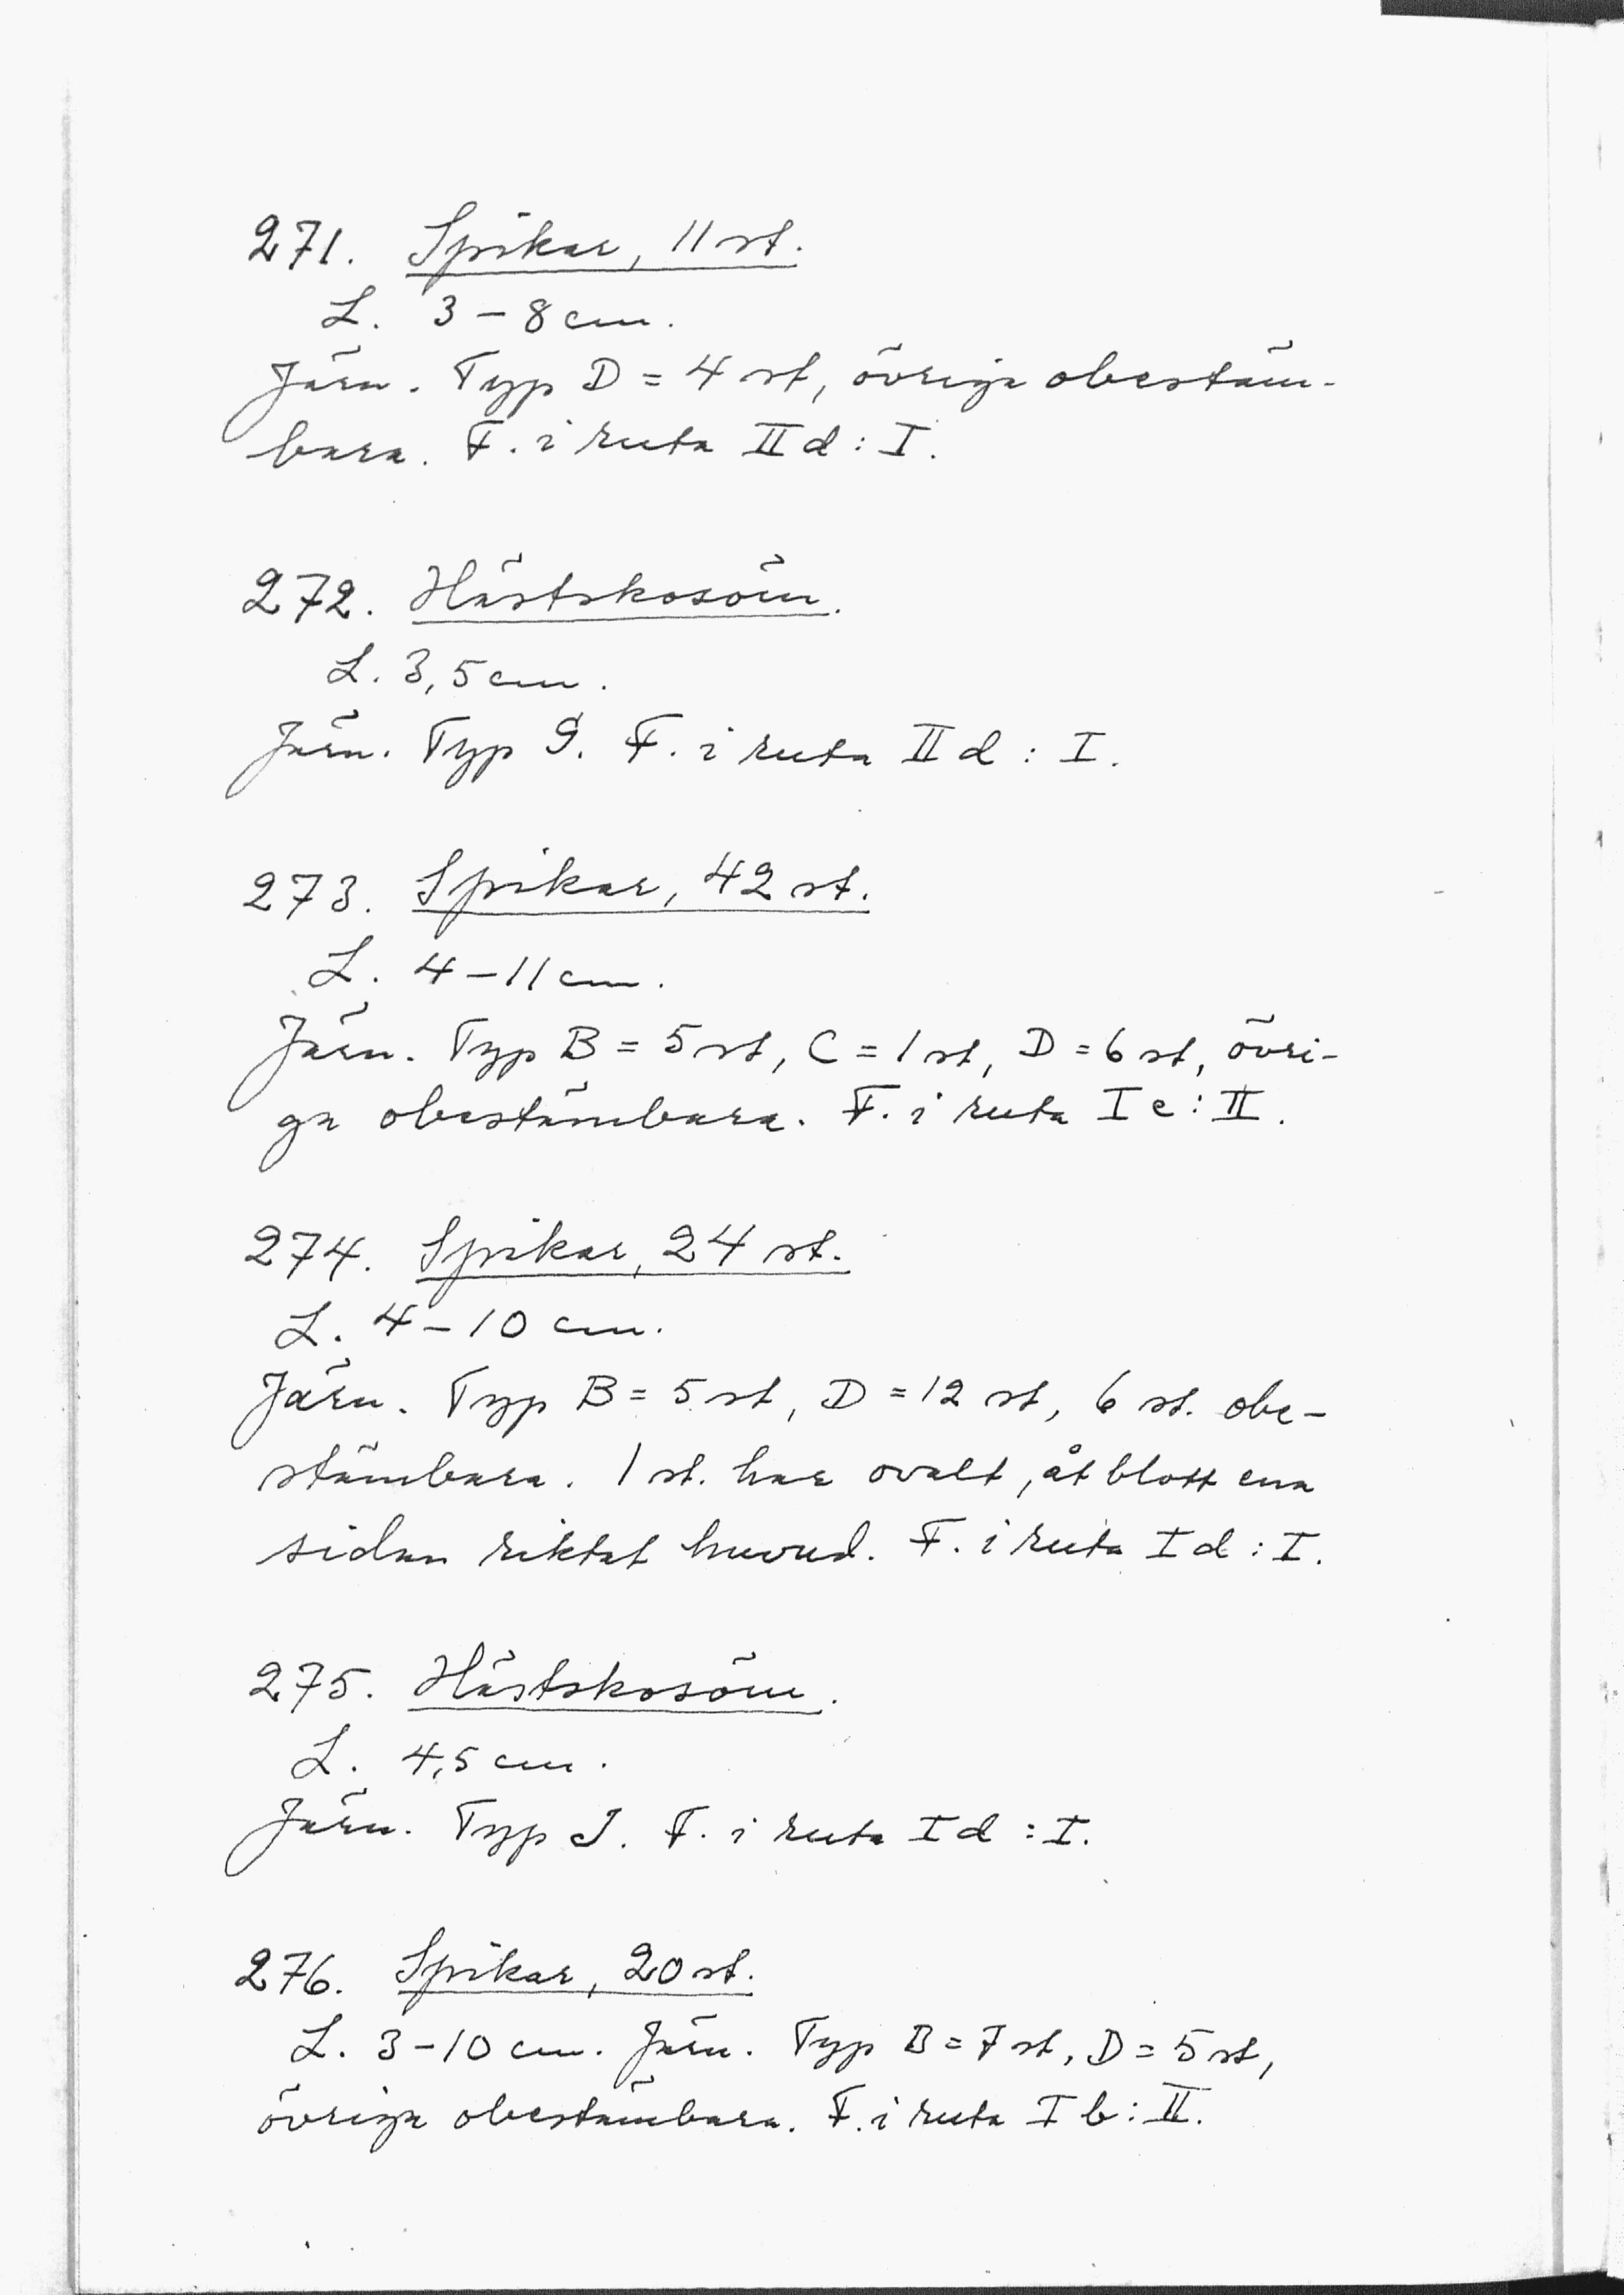 271. Spikar, 11 st.
L. 3-8 cm.
Järn. Typ D = 4 st, övriga obestäm-
bara. F. i ruta II d : I.
272. Hästskosöm.
L. 3,5 cm.
Järn. Typ G. F. i ruta II d : I.
273. Spikar, 42 st.
L. 4-11 cm.
Järn. Typ B = 5 st, C = 1 st, D = 6 st, övri-
ga obestämbara. F. i ruta I c : II.
274. Spikar, 24 st.
L. 4-10 cm.
Järn. Typ B = 5 st, D = 12 st, 6 st. obe-
stämbara. 1 st. har ovalt, åt blott ena
sidan riktat huvud. F. i ruta I d : I.
275. Hästskosöm.
L. 4,5 cm.
Järn. Typ J. F. i ruta I d : I.
276. Spikar, 20 st.
L. 3-10 cm. Järn. Typ B = 7 st, D = 5 st,
övriga obestämbara. F. i ruta I b : II.